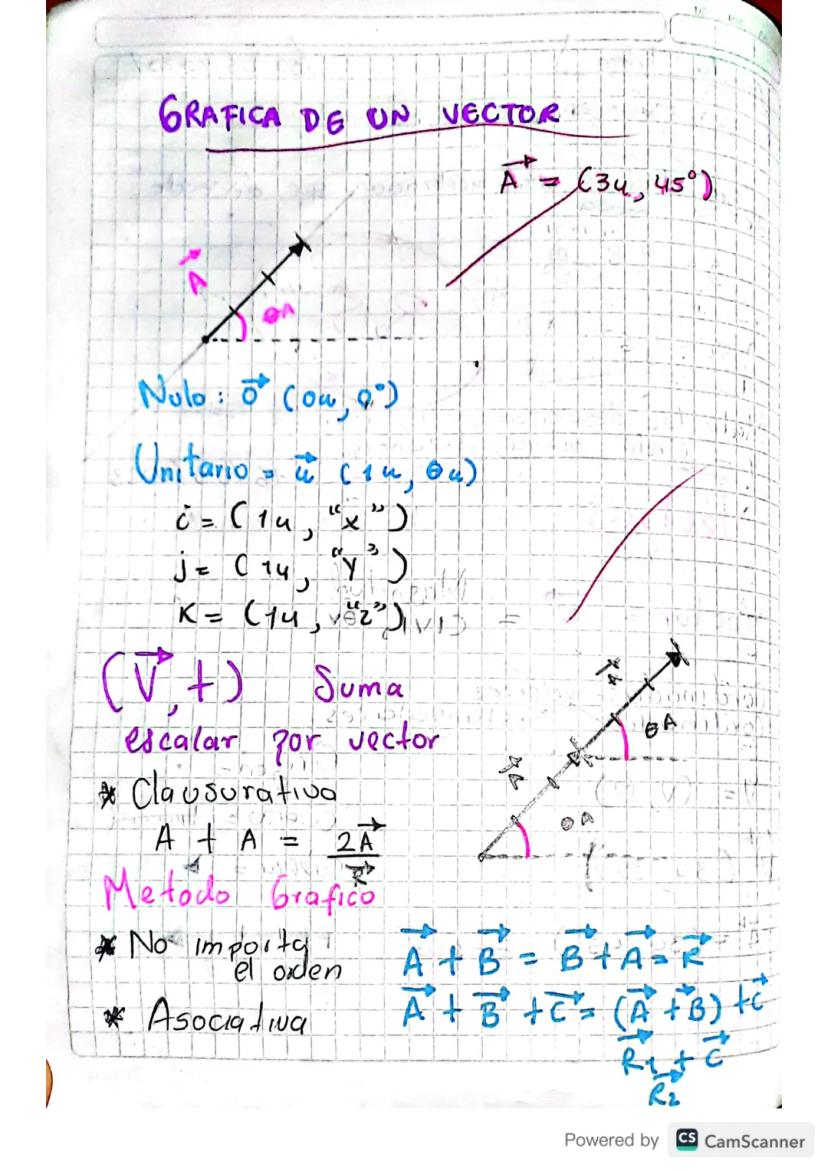 GRAFICA DE UN VECTOR
A = (3u, 45°)
A
θA
Nulo: 0 (0u, 0°)
Unitario = u (1u, θu)
i = (1u, "x")
j = (1u, "y")
K = (1u, "z")
(V, +) Suma
escalar por vector
A
θA
A
θA
* Clausurativa
A + A = 2A
R
Metodo Grafico
* No importa
el orden
A + B = B + A = R
* Asociativa
A + B + C = (A + B) + C
R1 + C
R2
Powered by CS CamScanner